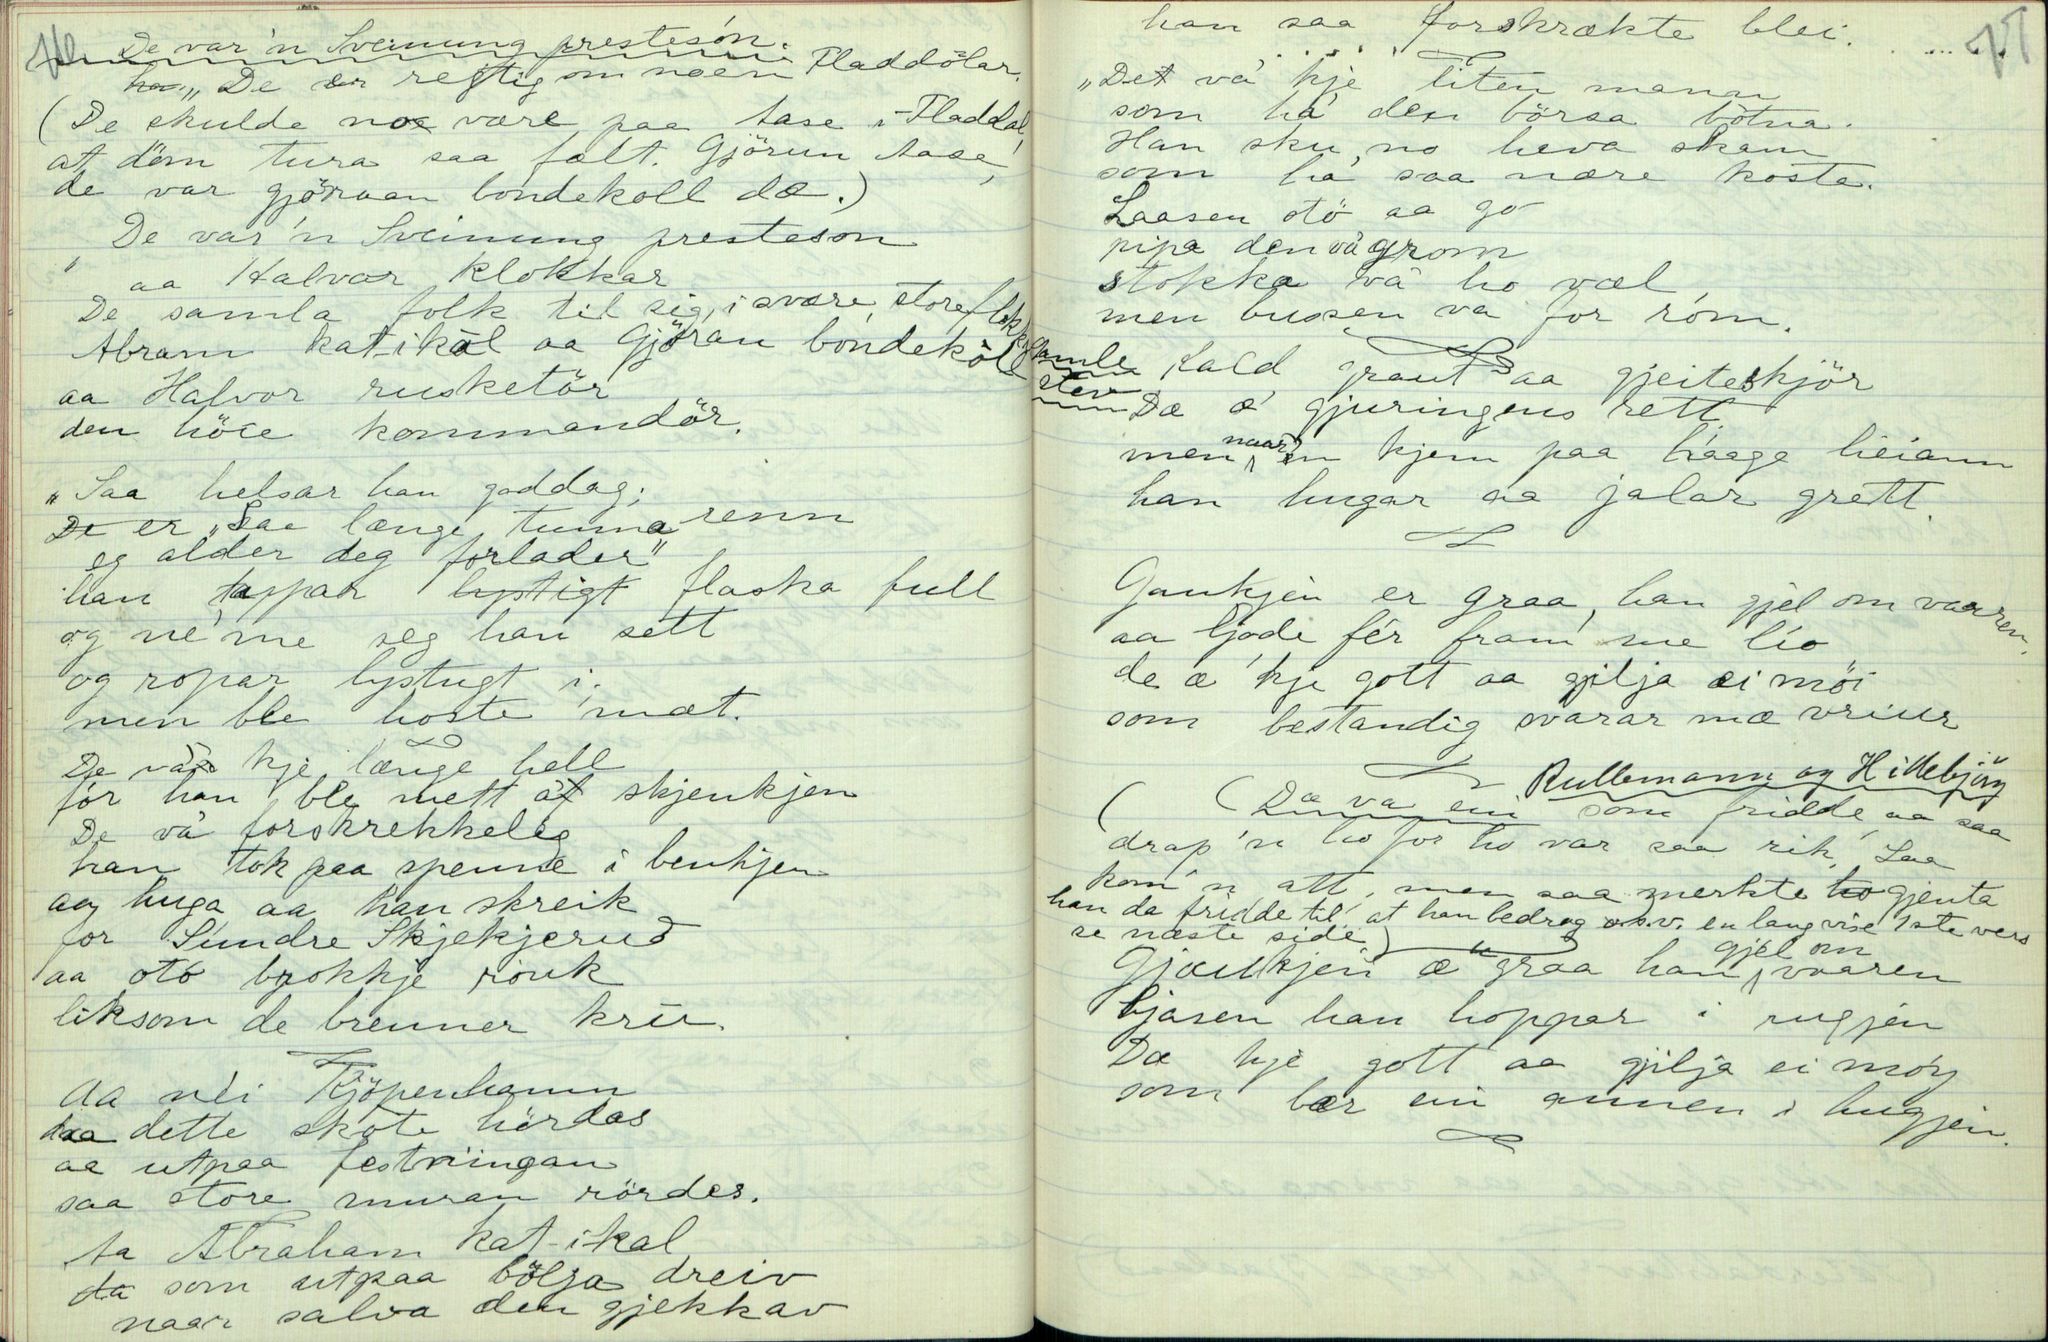 De var'n Sveinung presteson.
"De er reftig om noen Fladdölar.
(De skulde noe være paa Aase i Fladdal,
at döm tura saa fælt. Gjörun Aase,
de var gjöraan bondekoll dæ.)
De var'n Sveinung presteson
" aa Halvor Klokkar
De samla folk til sig, i svære, store flokka
Abram kat-i-kòl aa Gjöran bondekòll
aa Halvor rusketör
den höie kommandör.
"Saa helsar han goddag;
De er "Saa længe tunna renn
eg alder deg forlader"
han tappar lystigt flaska full
og ne'me seg han sett
og ropar lystugt i.
men ble hoste mæt.
De va kje længe hell
för han ble mett af skjenkjen
De va' forskrekkeleg
han tok paa spenne i benkjen
aa huga aa han skreik
for Sundre Skjekjerud
aa oto brokkje röuk
liksom de brenner krù.
Aa nei Kjöpenhamn
dette skote hördas
aa utpaa festningan
saa store muran rördes.
Aa Abraham kat-i-kal
som utpaa bölja dreiv
naar salva den gjekkav
71
han saa forskrækte blei.
"Det va' kje liten mann
som ha' den börsa bötna.
Han sku no heva skam
som ha' saa nære koste.
Laasen otö aa go
pipa den va grom
stokka va' ho væl
men bussen va for rom.
Gamle stev
Kald graut aa gjeiteskjör
Dæ æ' gjuringens rett
men naar en kjem paa haage heiann
han hugar aa jalar grett.
Gaukjen er graa, han gjel om vaaren,
aa ljode fér fram me lio
de æ' kje gott aa gilja ei möi
som bestandig svarar mæ vriur
Rullemann og Hillebjörg
(Dæ va ein som fridde aa saa
drap'n ho for ho var saa rik, Saa
kom'n att, men saa merkte gjenta
han da fridde til, at han bedrog o.s.v. en lang vise 1ste vers
se næste side)
Gjaukjen æ graa han gjel om vaaren
ljasen han hoppar i rugjen
Dæ kje gott aa gjilja ei möy
som bær ein annen i hugjen.